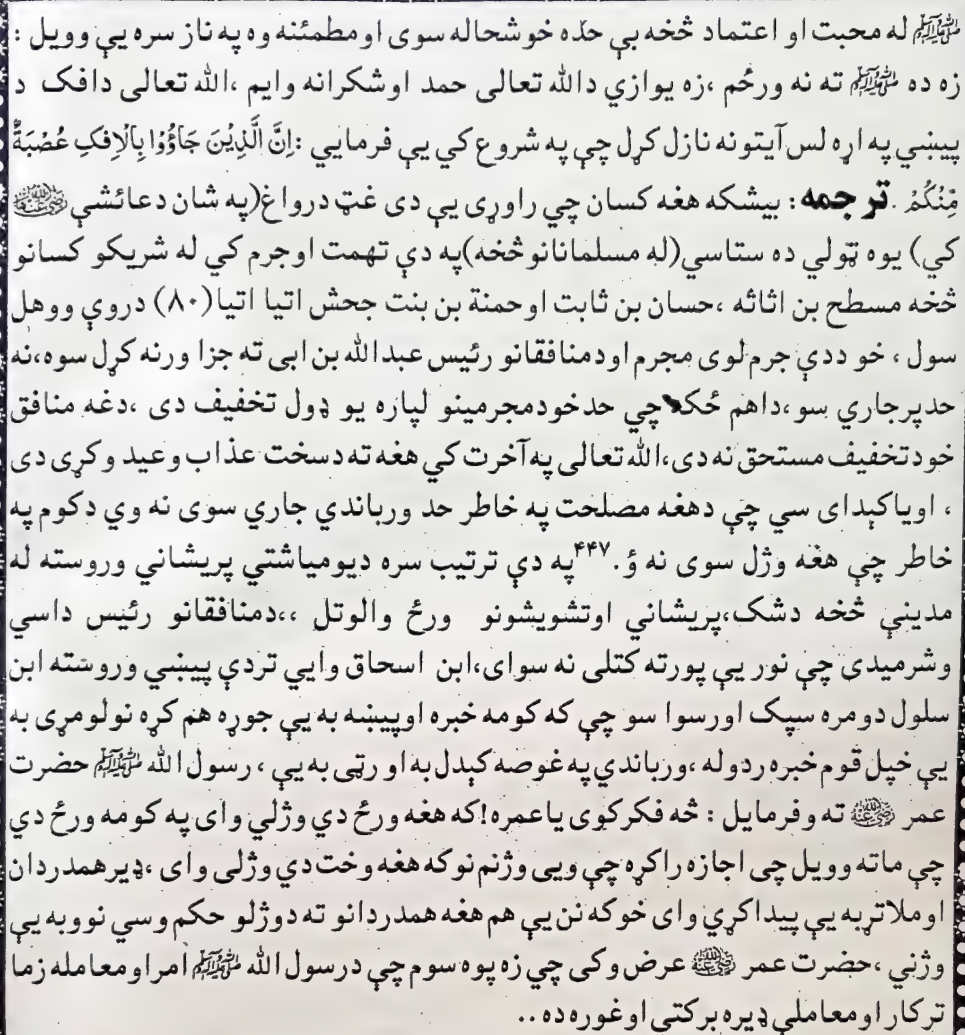 ﷺ له محبت او اعتماد څخه بې حده خوشحاله سوی او مطمئنه وه په ناز سره يې وويل :
زه ده ﷺ ته نه ورځم ،زه يوازي دالله تعالی حمد اوشکرانه وايم ،الله تعالی دافک د
پيښي په اړه لس آيتونه نازل کړل چې په شروع کي يې فرمايي :اِنَّ الَّذِيْنَ جَاؤُوْا بِالْاِفكِ عُصْبَةٌ
مِّنْكُمْ .ترجمه : بيشکه هغه کسان چي راوړی يې دی غټ درواغ(په شان دعائشې رضی الله عنها
کي) يوه ټولي ده ستاسي(له مسلمانانوڅخه)په دې تهمت اوجرم کي له شريکو کسانو
څخه مسطح بن اثاثه ،حسان بن ثابت اوحمنة بن بنت جحش اتيا اتيا(۸۰) دروې ووهل
سول ، خو ددې جرم لوی مجرم اودمنافقانو رئيس عبدالله بن ابی ته جزا ورنه کړل سوه،نه
حدپرجاري سو،داهم ځکه چي حدخودمجرمينو لپاره يو ډول تخفيف دی ،دغه منافق
خودتخفيف مستحق نه دی،الله تعالی په آخرت کي هغه ته دسخت عذاب وعيد وکړی دی
، اوياکېدای سي چي دهغه مصلحت په خاطر حد ورباندي جاري سوی نه وي دکوم په
خاطر چې هغه وژل سوی نه ؤ.۴۴۷په دې ترتيب سره ديومياشتي پريشاني وروسته له
مدينې څخه دشک،پريشاني اوتشويشونو ورځ والوتل ،،دمنافقانو رئيس داسي
وشرميدی چې نور يې پورته کتلی نه سوای،ابن اسحاق وايي تردې پيښي وروسته ابن
سلول دومره سپک اورسوا سو چي که کومه خبره اوپيښه به يې جوړه هم کړه نولومړی به
يې خپل قوم خبره ردوله ،ورباندي په غوصه کېدل به او رټی به يې ، رسول الله ﷺ حضرت
عمر رضی الله عنه ته وفرمايل : څه فکرکوی ياعمره!که هغه ورځ دي وژلي وای په کومه ورځ دي
چې ماته وويل چی اجازه راکړه چې ويی وژنم نوکه هغه وخت دي وژلی وای ،ډيرهمدردان
اوملاتړبه يې پيداکړي وای خوکه نن يې هم هغه همدردانو ته دوژلو حکم وسي نووبه يې
وژني ،حضرت عمر رضی الله عنه عرض وکی چي زه پوه سوم چې درسول الله ﷺ امراومعامله زما
ترکار اومعاملې ډيره برکتی اوغوره ده ..